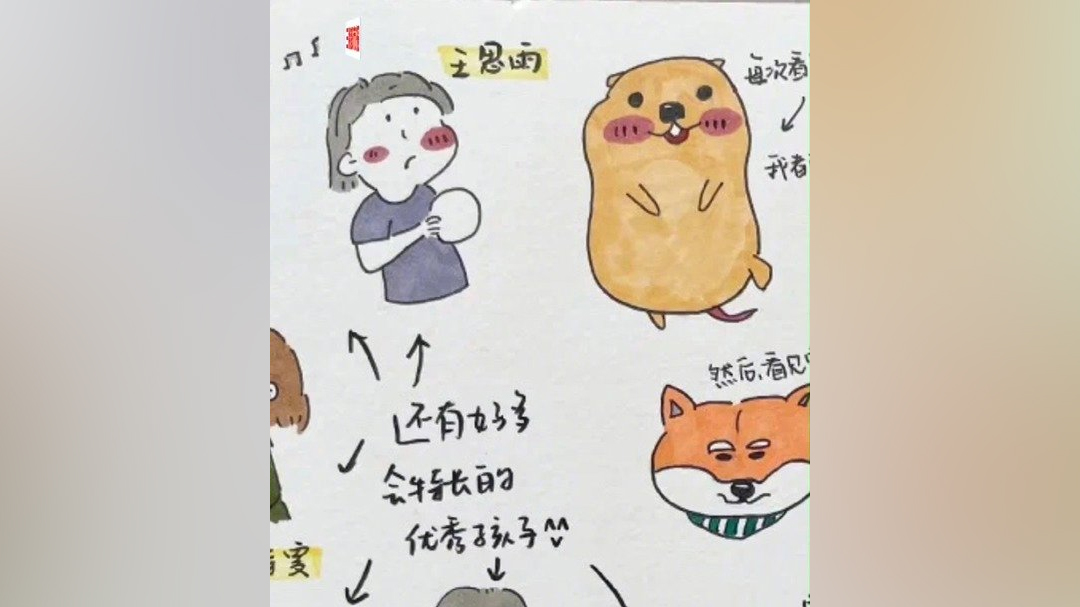 王思雨
每次看
我者
然后看见
还有好多
会特长的
优秀孩子^^
雯